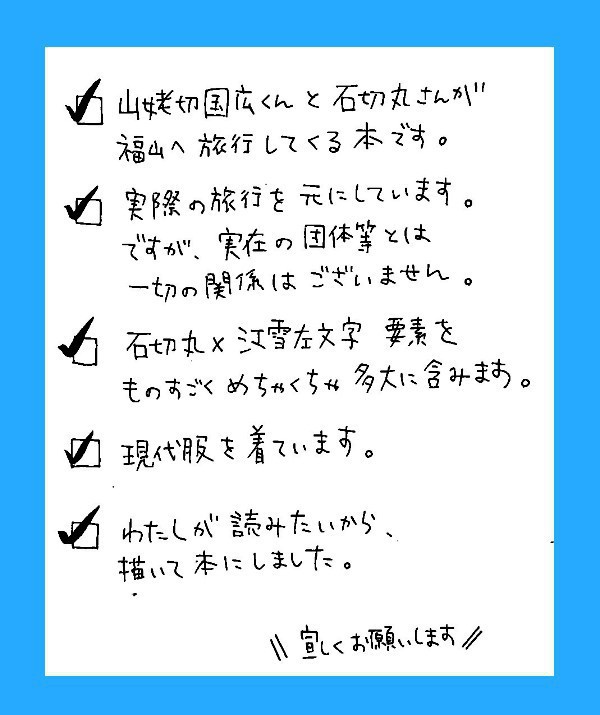 山姥切国広くんと石切丸さんが
福山へ旅行してくる本です。
実際の旅行を元にしています。
ですが、実在の団体等とは
一切の関係はございません。
石切丸×江雪左文字 要素を
ものすごくめちゃくちゃ多大に含みます。
現代服を着ています。
わたしが読みたいから、
描いて本にしました。
\\ 宜しくお願いします //